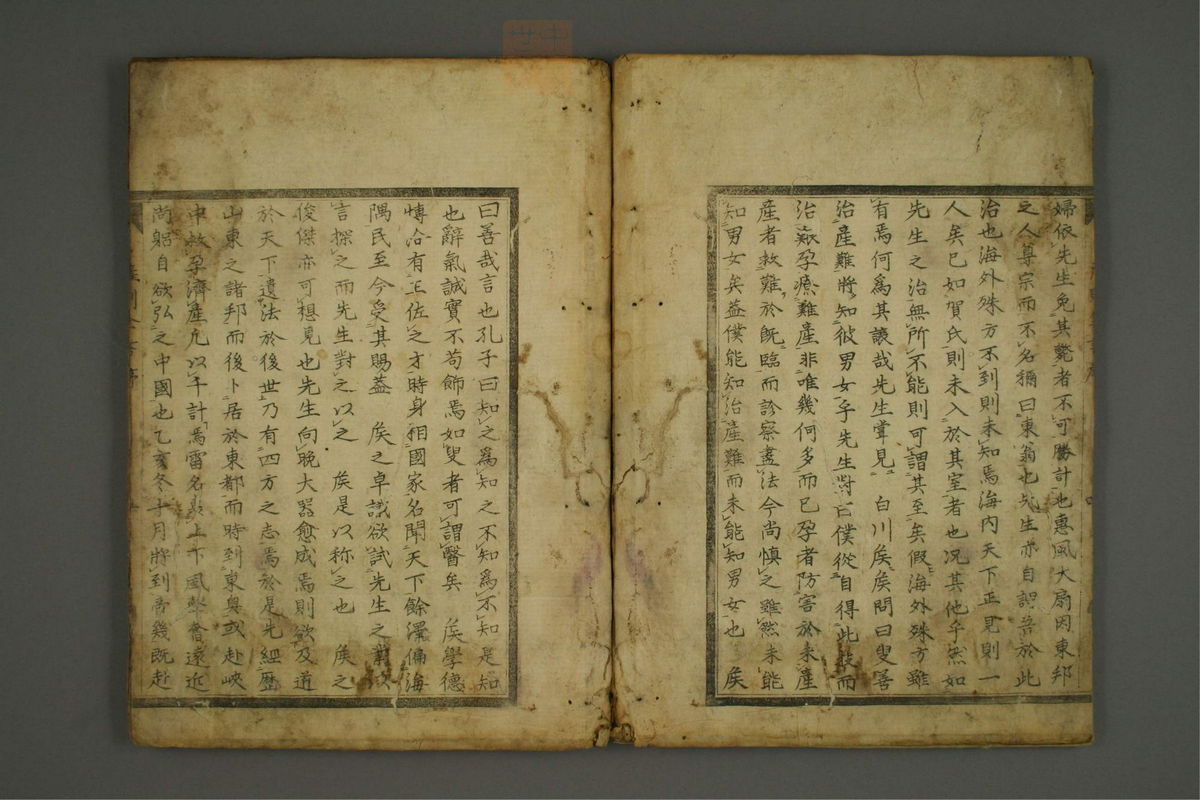 婦依先生免其斃者不可勝計也惠風大扇因東邦
之人尊宗而不名稱曰東翁也先生亦自謂吾於此
治也海外殊方不到則未知焉海内天下正見則一
人矣已如賀氏則未入於其室者也况其他乎然如
先生之治無所不能則可謂其至矣假海外殊方雖
有焉何為其讓哉先生嘗見 白川侯侯問曰叟善
治產難將知彼男女乎先生對曰僕從自得此技而
治孕療難產非唯幾何多而已孕者防害於未產
產者救難於既臨而診察盡法今尚慎之雖然未能
知男女矣益僕能知治產難而未能知男女也 侯
曰善哉言也孔子曰知之為知之不知為不知是知
也辭氣誠實不苟飾焉如叟者可謂醫矣 侯學德
愽洽有王佐之才時身相國家名聞天下餘澤偏海
隅民至今受其賜蓋 侯之卓識欲試先生之
言探之而先生對之以之 侯是以称之也 侯之
俊傑亦可想見也先生向晚大器愈成焉則欲及道
於天下遺法於後世乃有四方之志焉於是先經歷
山東之諸邦而後卜居於東都而時到東奥或赴峽
中救孕濟產凡以千計焉雷名裴上下風聲會遠近
尚躬自欲弘之中國也乙亥冬十月將到帝幾既赴